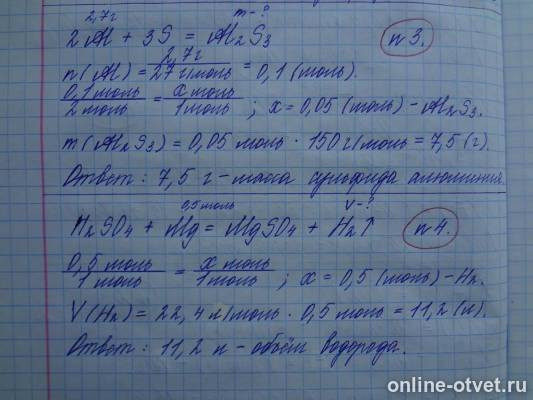 2,7г m-?
2Al + 3S = Al2S3 n3.
n(Al) = 2,7г / 27 г/моль = 0,1 (моль).
0,1 моль / 2 моль = x моль / 1 моль ; x = 0,05 (моль) - Al2S3.
m(Al2S3) = 0,05 моль · 150 г/моль = 7,5 (г).
Ответ: 7,5 г - масса сульфида алюминия
0,5 моль V-?
H2SO4 + Mg = MgSO4 + H2↑ n4.
0,5 моль / 1 моль = x моль / 1 моль ; x = 0,5 (моль) - H2.
V(H2) = 22,4 л/моль · 0,5 моль = 11,2 (л).
Ответ: 11,2 л - объём водорода.
online-otvet.ru